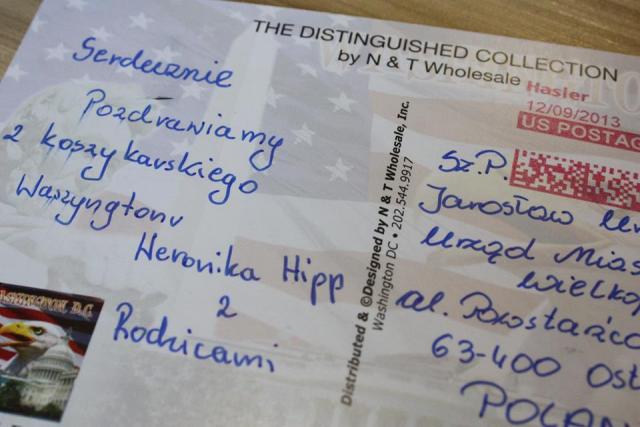 THE DISTINGUISHED COLLECTION
by N & T Wholesale
Hasler
12/09/2013
US POSTAG
Serdecznie
Pozdrawiamy
z koszykarskiego
Waszyngtonu
Weronika Hipp
z
Rodzicami
Distributed & ©Designed by N & T Wholesale, Inc.
Washington DC • 202.544.9917
Sz.P.
Jarosław
Urząd Mias
Wielko
al. Powstańcó
63-400 Ost
POLAN
WASHINGTON, D.C.